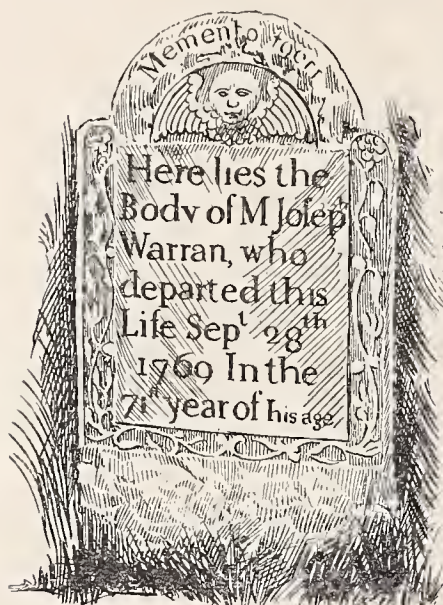 Memento mori
Here lies the
Body of M Joſeph
Warran, who
departed this
Life Sepᵗ 28ᵗʰ
1769 In the
71ˢᵗ year of his age